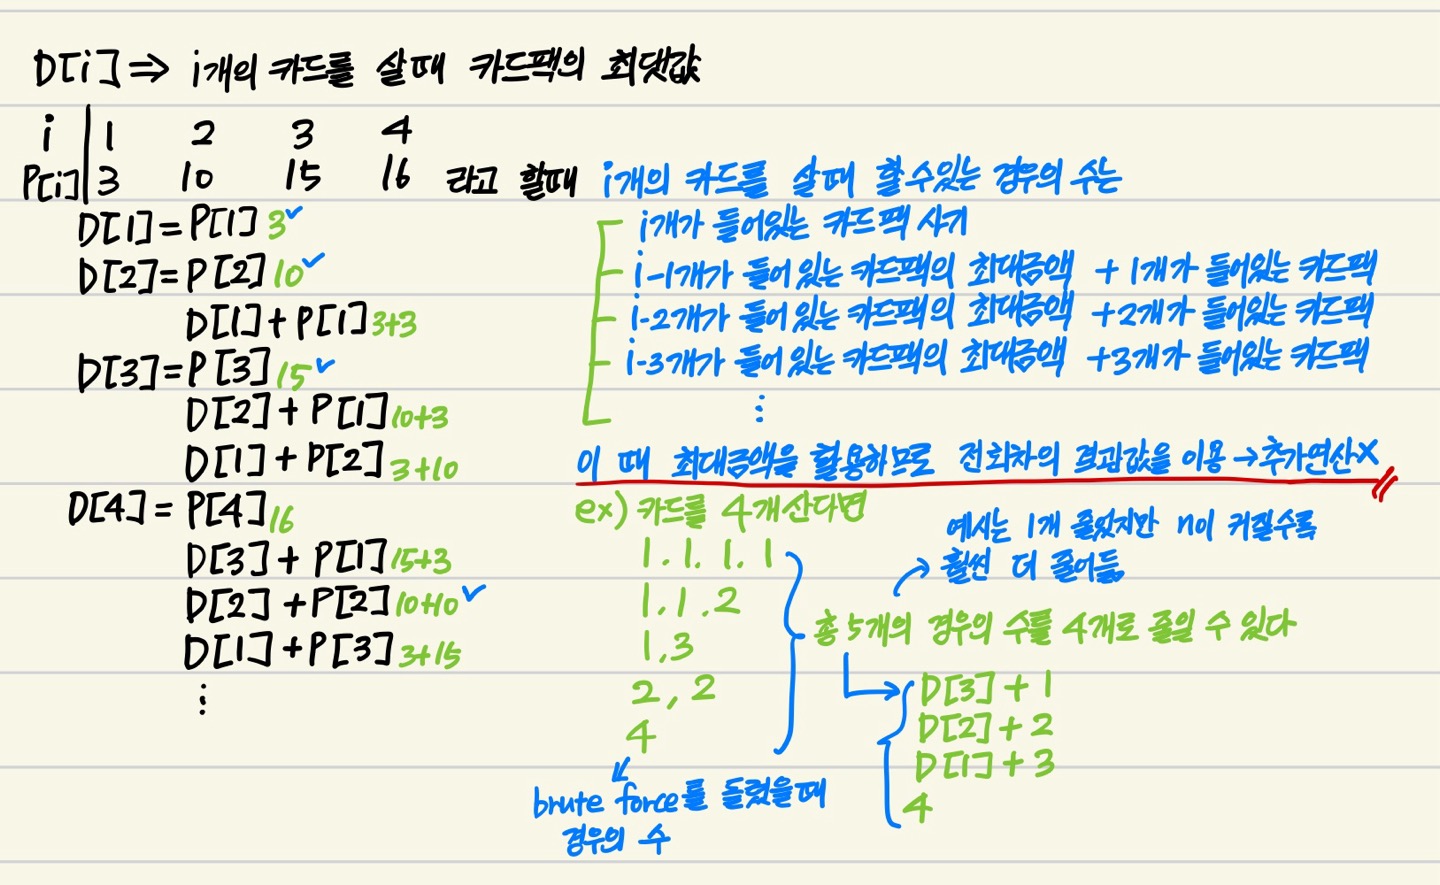 D[i] ⇒ i개의 카드를 살때 카드팩의 최댓값
i 1 2 3 4
P[i] 3 10 15 16 라고 할때 i개의 카드를 살때 할수있는 경우의 수는
D[1] = P[1] 3✓
D[2] = P[2] 10✓
D[1] + P[1] 3+3
D[3] = P[3] 15✓
D[2] + P[1] 10+3
D[1] + P[2] 3+10
D[4] = P[4] 16
D[3] + P[1] 15+3
D[2] + P[2] 10+10✓
D[1] + P[3] 3+15
⋮
i개가 들어있는 카드팩 사기
i-1개가 들어 있는 카드팩의 최대금액 + 1개가 들어있는 카드팩
i-2개가 들어 있는 카드팩의 최대금액 +2개가 들어있는 카드팩
i-3개가 들어 있는 카드팩의 최대금액 +3개가 들어있는 카드팩
⋮
이 때 최대금액을 활용하므로 전회차의 결과값을 이용 → 추가연산X
ex) 카드를 4개산다면
1. 1. 1. 1
1, 1. 2
1, 3
2, 2
4
brute force를 돌렸을때
경우의 수
예시는 1개 줄었지만 n이 커질수록
훨씬 더 줄어듦
총 5개의 경우의 수를 4개로 줄일 수 있다
D[3] + 1
D[2] + 2
D[1] + 3
4